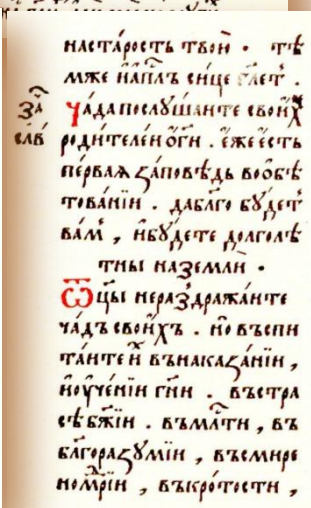 настáрость твою̀ • тѣ
мже и҆ап҃лъ си́це гл҃ет .
Чáда послѹ́шаите свои́х
за҄
слв҄
родителеи ог҃ни . е҆же е҆сть
пе́рваѧ зáповѣдь вооб̾ѣ
товáнїи . даблг҃о бѹ́дет
вáм , ибѹ́дете долголѣ
тны наземлѝ •
Ѿцы нераздражáите
чáдъ свои́хъ . но̀ въспи
тáите и҆ въ наказáнїи ,
иоу҆че́нїи гн҃и . въстра
сѣ бж҃їи . въмл҃ти , въ
бл҃горазѹ́мїи , въсмире
номѹ́дрїи , въкро́тости ,